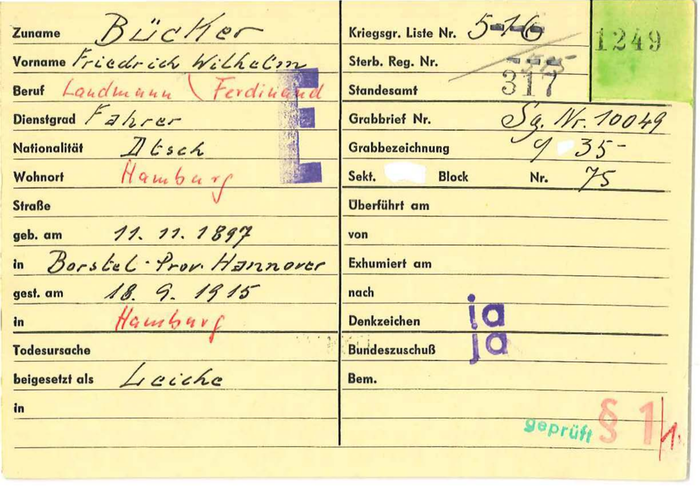 Zuname Bücker
Vorname Friedrich Wilhelm
Beruf Landmann \ Ferdinand
Dienstgrad Fahrer
Nationalität Dtsch
Wohnort Hamburg
Straße
geb. am 11. 11. 1897
in Borstel-Prov. Hannover
gest. am 18. 9. 1915
in Hamburg
Todesursache
beigesetzt als Leiche
in
Kriegsgr. Liste Nr. 5-16
1249
Sterb. Reg. Nr.
Standesamt 317
Grabbrief Nr. Sg. Nr. 10049
Grabbezeichnung 35-
Sekt. Block Nr. 75
Überführt am
von
Exhumiert am
nach
Denkzeichen ja
Bundeszuschuß ja
Bem.
geprüft § 1